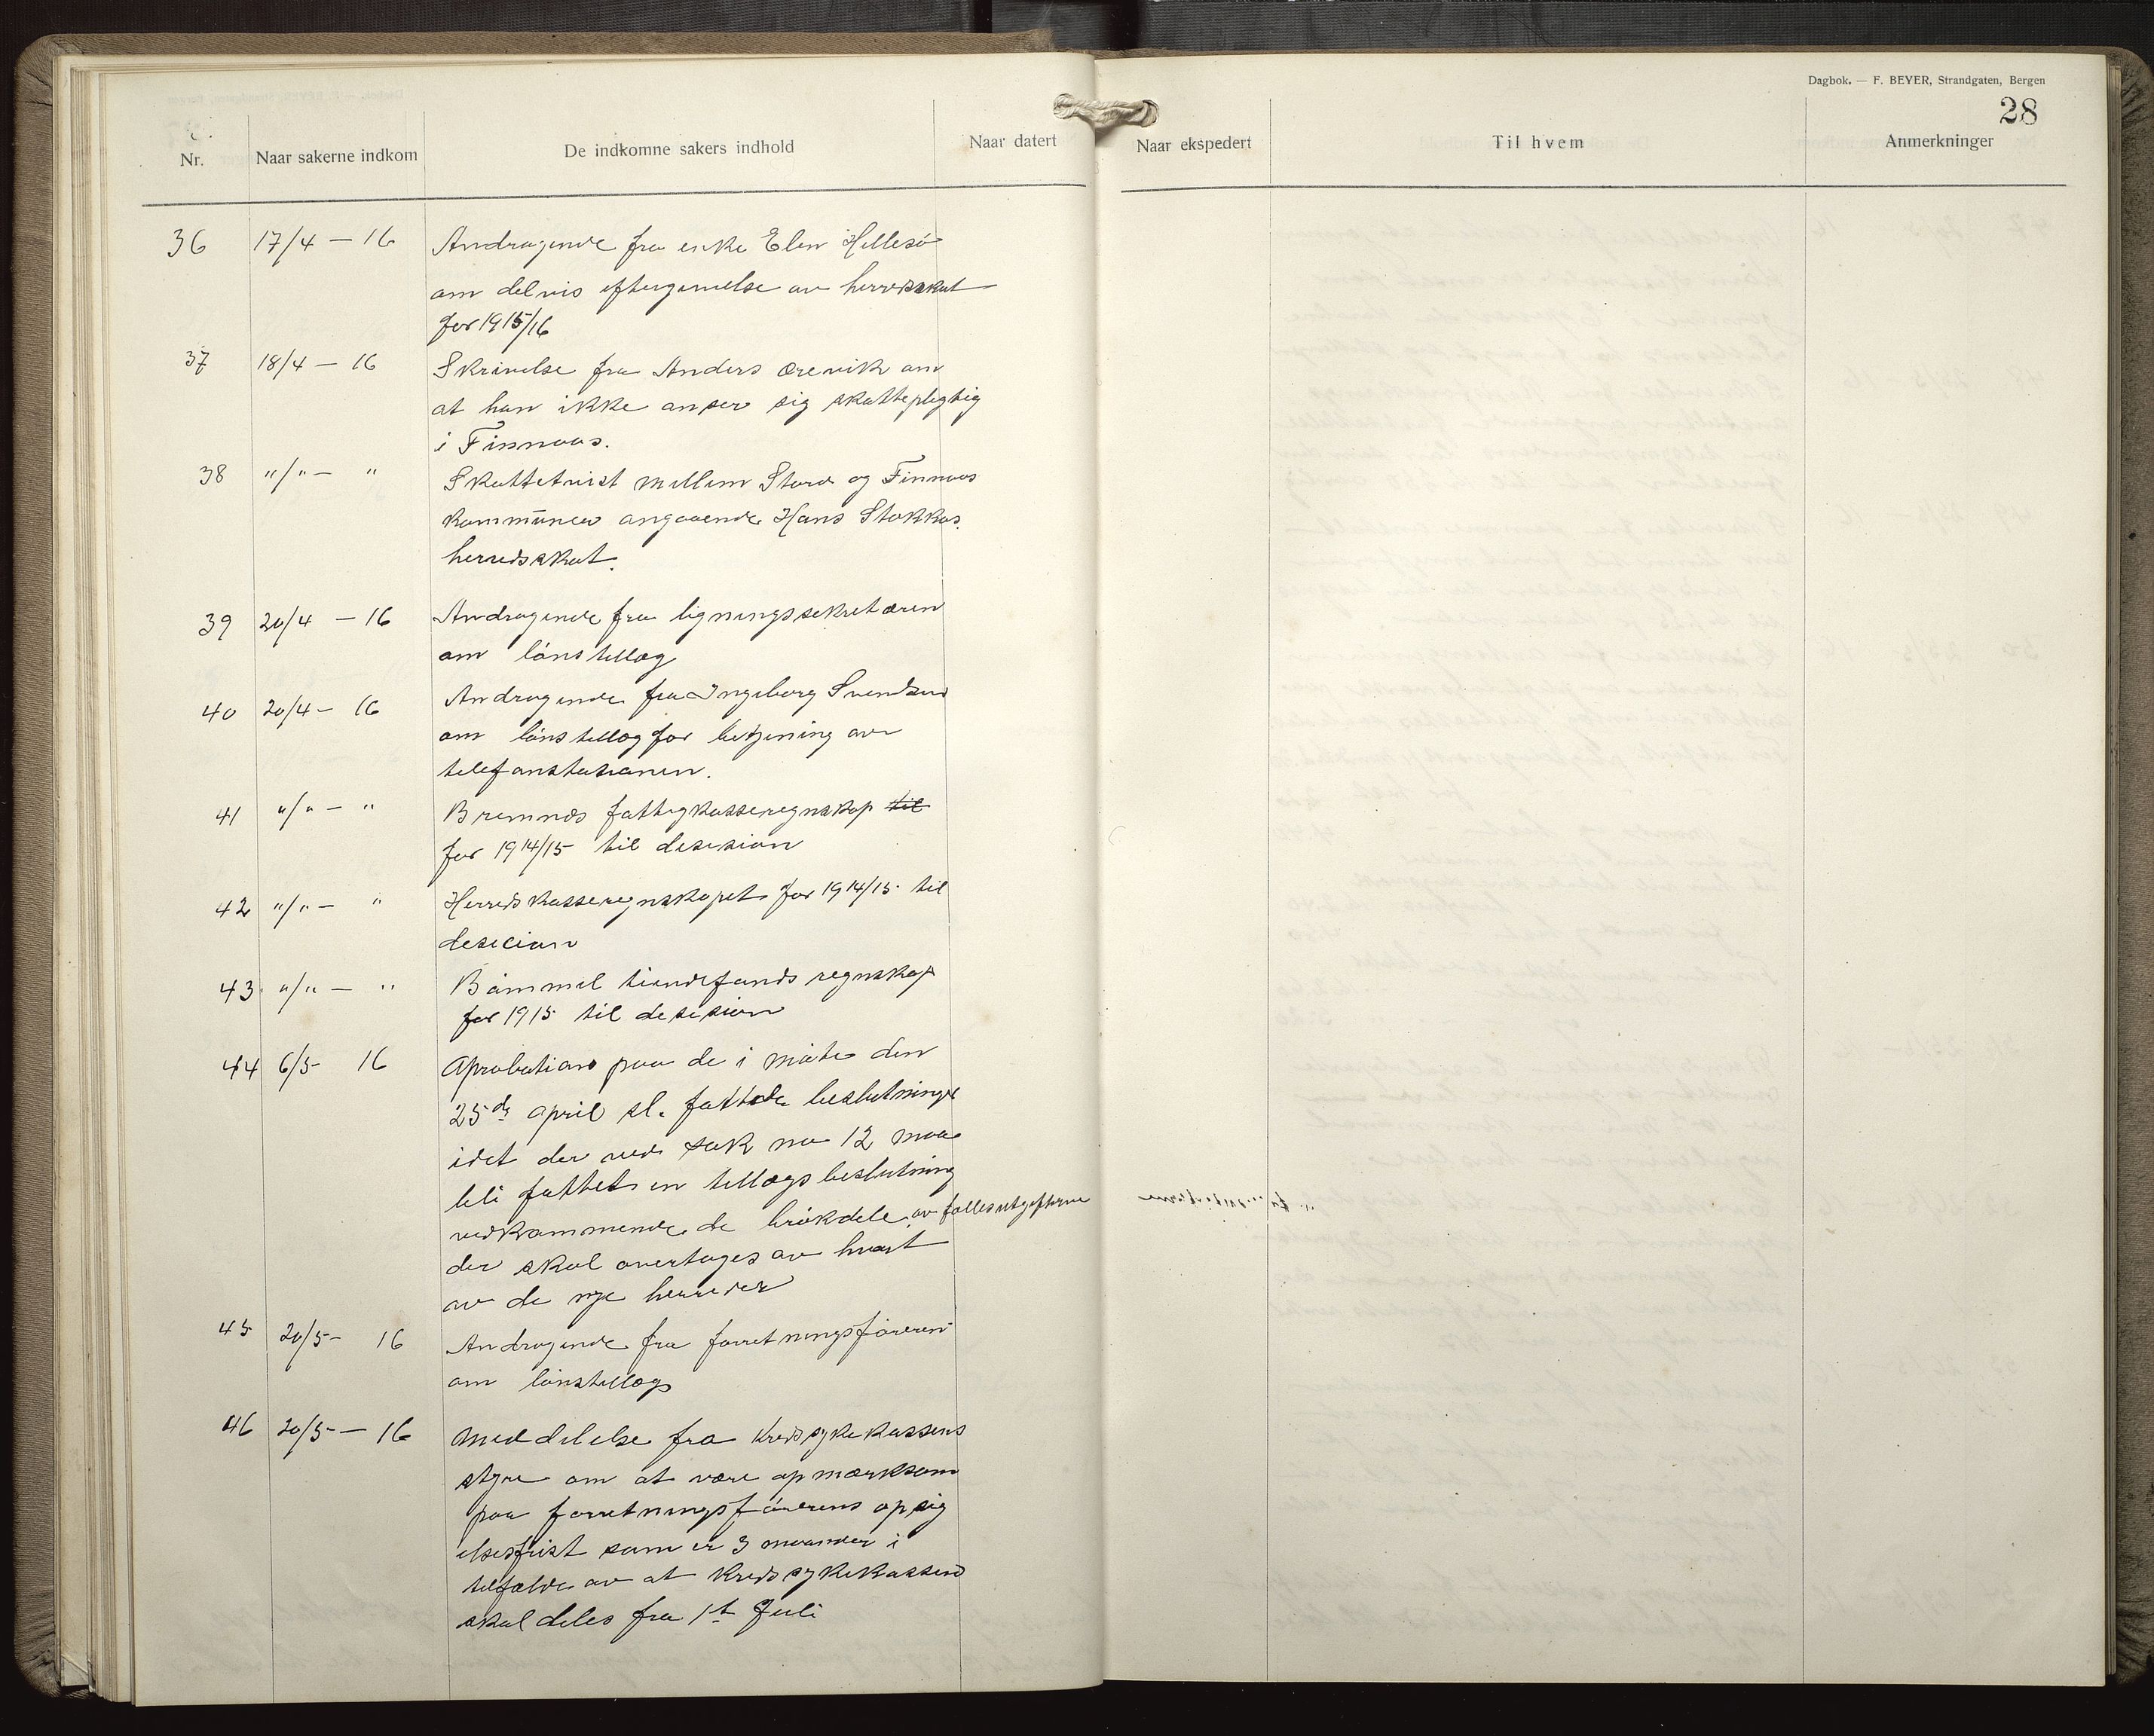 Dagbok. — F. BEYER, Strandgaten, Bergen
28
Nr. Naar sakerne indkom De indkomne sakers indhold Naar datert Naar ekspedert Til hvem Anmerkninger
36 17/4 — 16 Andragende fra enke Elen Hillesö
om delvis eftergivelse av herredskat
for 1915/16
37 18/4 — 16 Skrivelse fra Anders Ørevik om
at han ikke anser sig skattepligtig
i Finnaas.
38 "/" — " Skattetvist mellem Stord og Finnaas
kommuner angaaende Hans Stokkas
herredsskat.
39 20/4 — 16 Andragende fra ligningssekretæren
om lönstillæg
40 20/4 — 16 Andragende fra Ingeborg Svendsen
om lönstillæg for betjening av
telefonstasionen.
41 "/" — " Bremnes fattigkasseregnskap til
for 1914/15 til desision
42 "/" — " Herredskasseregnskapet for 1914/15 til
desicion
43 "/" — " Bömmel tiendefonds regnskap
for 1915 til desision
44 6/5 16 Aprobation paa de i möte den
25de april sl. fattede beslutninger
idet der ved sak no 12 maa
bli fattet en tillægsbeslutning
vedkommende de brökdele av fællesutgifterne
der skal overtages av hvært
av de nye herreder
45 20/5 — 16 Andragende fra forretningsföreren
om lönstillæg
46 20/5 — 16 Meddelelse fra Kredssykekassens
styre om at være opmærksom
paa forretningsförerens opsig
elsesfrist som er 3 maaneder i
tilfælde av at Kredssykekassen
skal deles fra 1st Juli